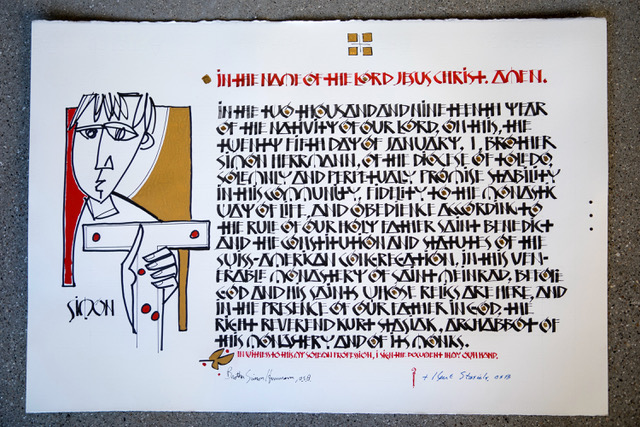 IN THE NAME OF THE LORD JESUS CHRIST. AMEN.
IN THE TWO THOUSAND AND NINETEENTH YEAR
OF THE NATIVITY OF OUR LORD, ON THIS, THE
TWENTY FIFTH DAY OF JANUARY, I, BROTHER
SIMON HERRMANN, OF THE DIOCESE OF TOLEDO,
SOLEMNLY AND PERPETUALLY PROMISE STABILITY
IN THIS COMMUNITY, FIDELITY TO THE MONASTIC
WAY OF LIFE, AND OBEDIENCE ACCORDING TO
THE RULE OF OUR HOLY FATHER SAINT BENEDICT
AND THE CONSTITUTION AND STATUTES OF THE
SWISS-AMERICAN CONGREGATION, IN THIS VEN-
ERABLE MONASTERY OF SAINT MEINRAD, BEFORE
GOD AND HIS SAINTS WHOSE RELICS ARE HERE, AND
IN THE PRESENCE OF OUR FATHER IN GOD, THE
RIGHT REVEREND KURT STASIAK, ARCHABBOT OF
THIS MONASTERY AND OF ITS MONKS.
SIMON
IN WITNESS TO THIS MY SOLEMN PROFESSION, I SIGN THE DOCUMENT IN MY OWN HAND.
Brother Simon Herrmann, OSB
+ Kurt Stasiak, OSB